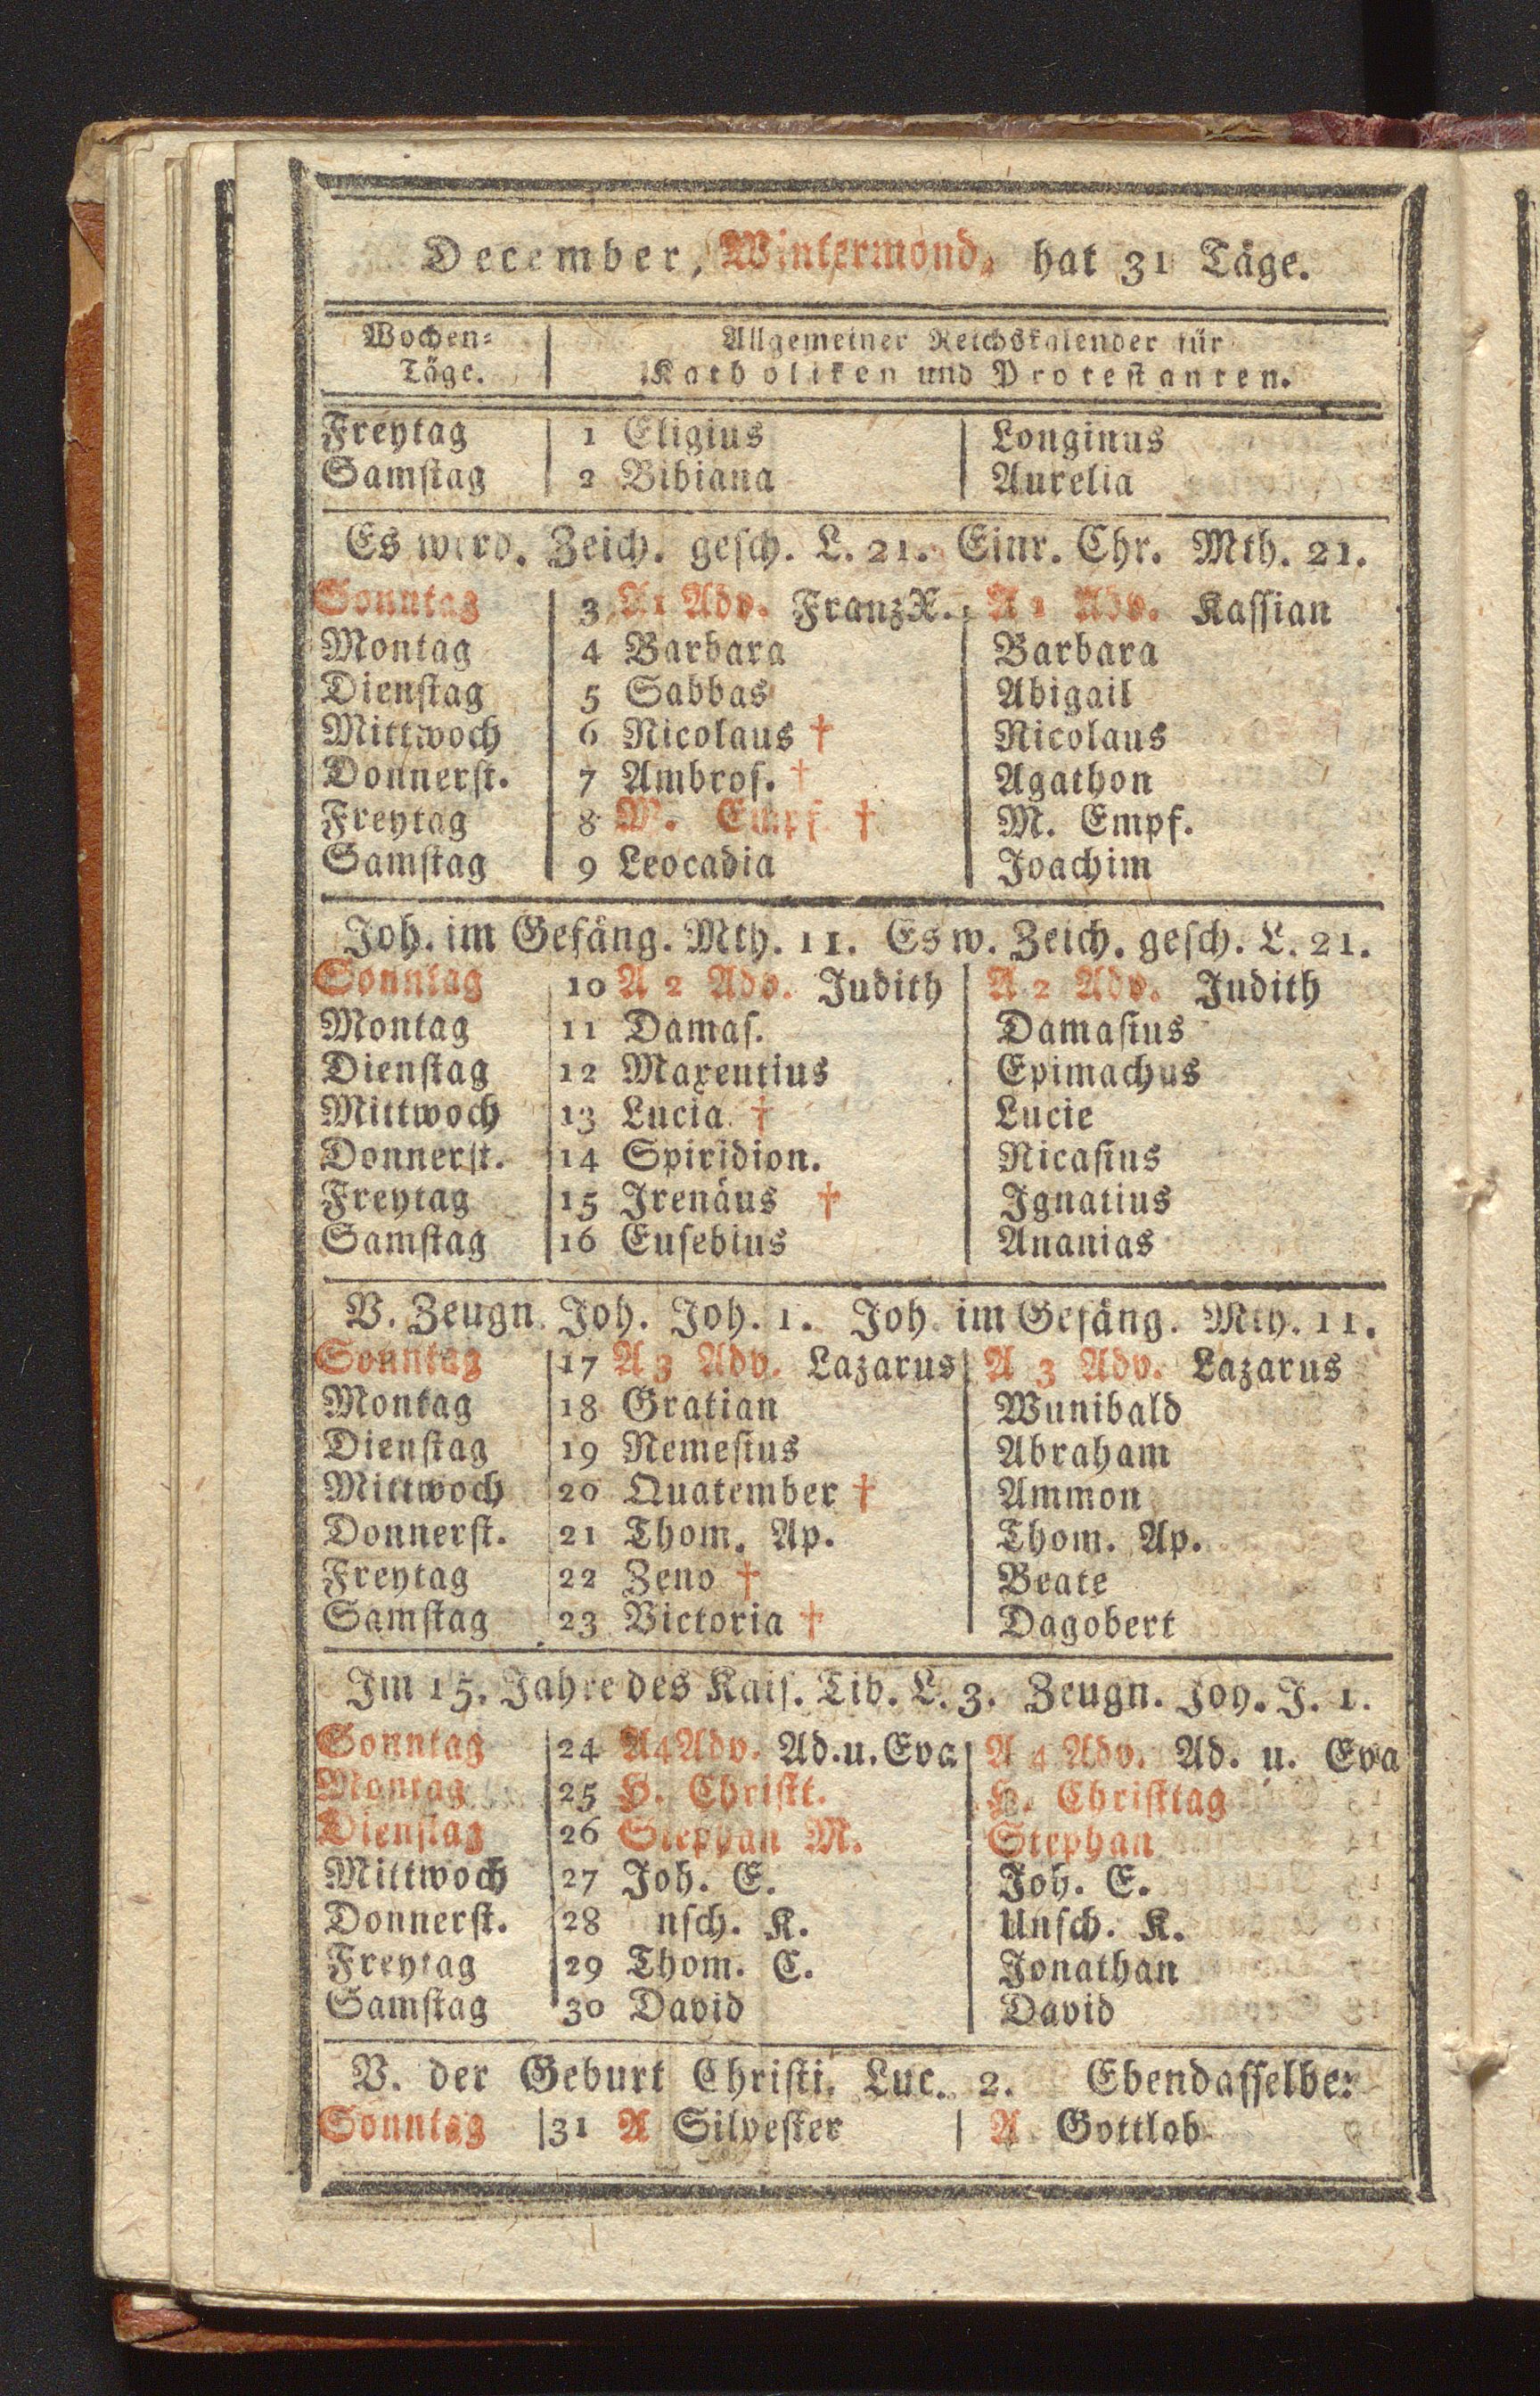 December, Wintermond, hat 31 Täge.
Wochen= Allgemeiner Reichskalender für
Täge. Katholiken und Protestanten.
Freytag 1 Eligius Longinus
Samstag 2 Bibiana Aurelia
Es werd. Zeich. gesch. L. 21. Einr. Chr. Mth. 21.
Sonntag 3 A 1 Adv. Franz X. A 1 Adv. Kassian
Montag 4 Barbara Barbara
Dienstag 5 Sabbas Abigail
Mittwoch 6 Nicolaus † Nicolaus
Donnerst. 7 Ambros. † Agathon
Freytag 8 M. Empf. † M. Empf.
Samstag 9 Leocadia Joachim
Joh. im Gefäng. Mth. 11. Es w. Zeich. gesch. L. 21.
Sonntag 10 A 2 Adv. Judith A 2 Adv. Judith
Montag 11 Damas. Damasius
Dienstag 12 Maxentius Epimachus
Mittwoch 13 Lucia † Lucie
Donnerst. 14 Spiridion. Nicasius
Freytag 15 Irenäus † Ignatius
Samstag 16 Eusebius Ananias
V. Zeugn. Joh. Joh. 1. Joh. im Gefäng. Mth. 11.
Sonntag 17 A 3 Adv. Lazarus A 3 Adv. Lazarus
Montag 18 Gratian Wunibald
Dienstag 19 Nemesius Abraham
Mittwoch 20 Quatember † Ammon
Donnerst. 21 Thom. Ap. Thom. Ap.
Freytag 22 Zeno † Beate
Samstag 23 Victoria † Dagobert
Im 15. Jahre des Kais. Tib. L. 3. Zeugn. Joh. J. 1.
Sonntag 24 A 4 Adv. Ad. u. Eva A 4 Adv. Ad. u. Eva
Montag 25 H. Christt. H. Christtag
Dienstag 26 Stephan M. Stephan
Mittwoch 27 Joh. E. Joh. E.
Donnerst. 28 nsch. K. Unsch. K.
Freytag 29 Thom. C. Jonathan
Samstag 30 David David
V. der Geburt Christi. Luc. 2. Ebendasselbe.
Sonntag 31 A Silvester A Gottlob